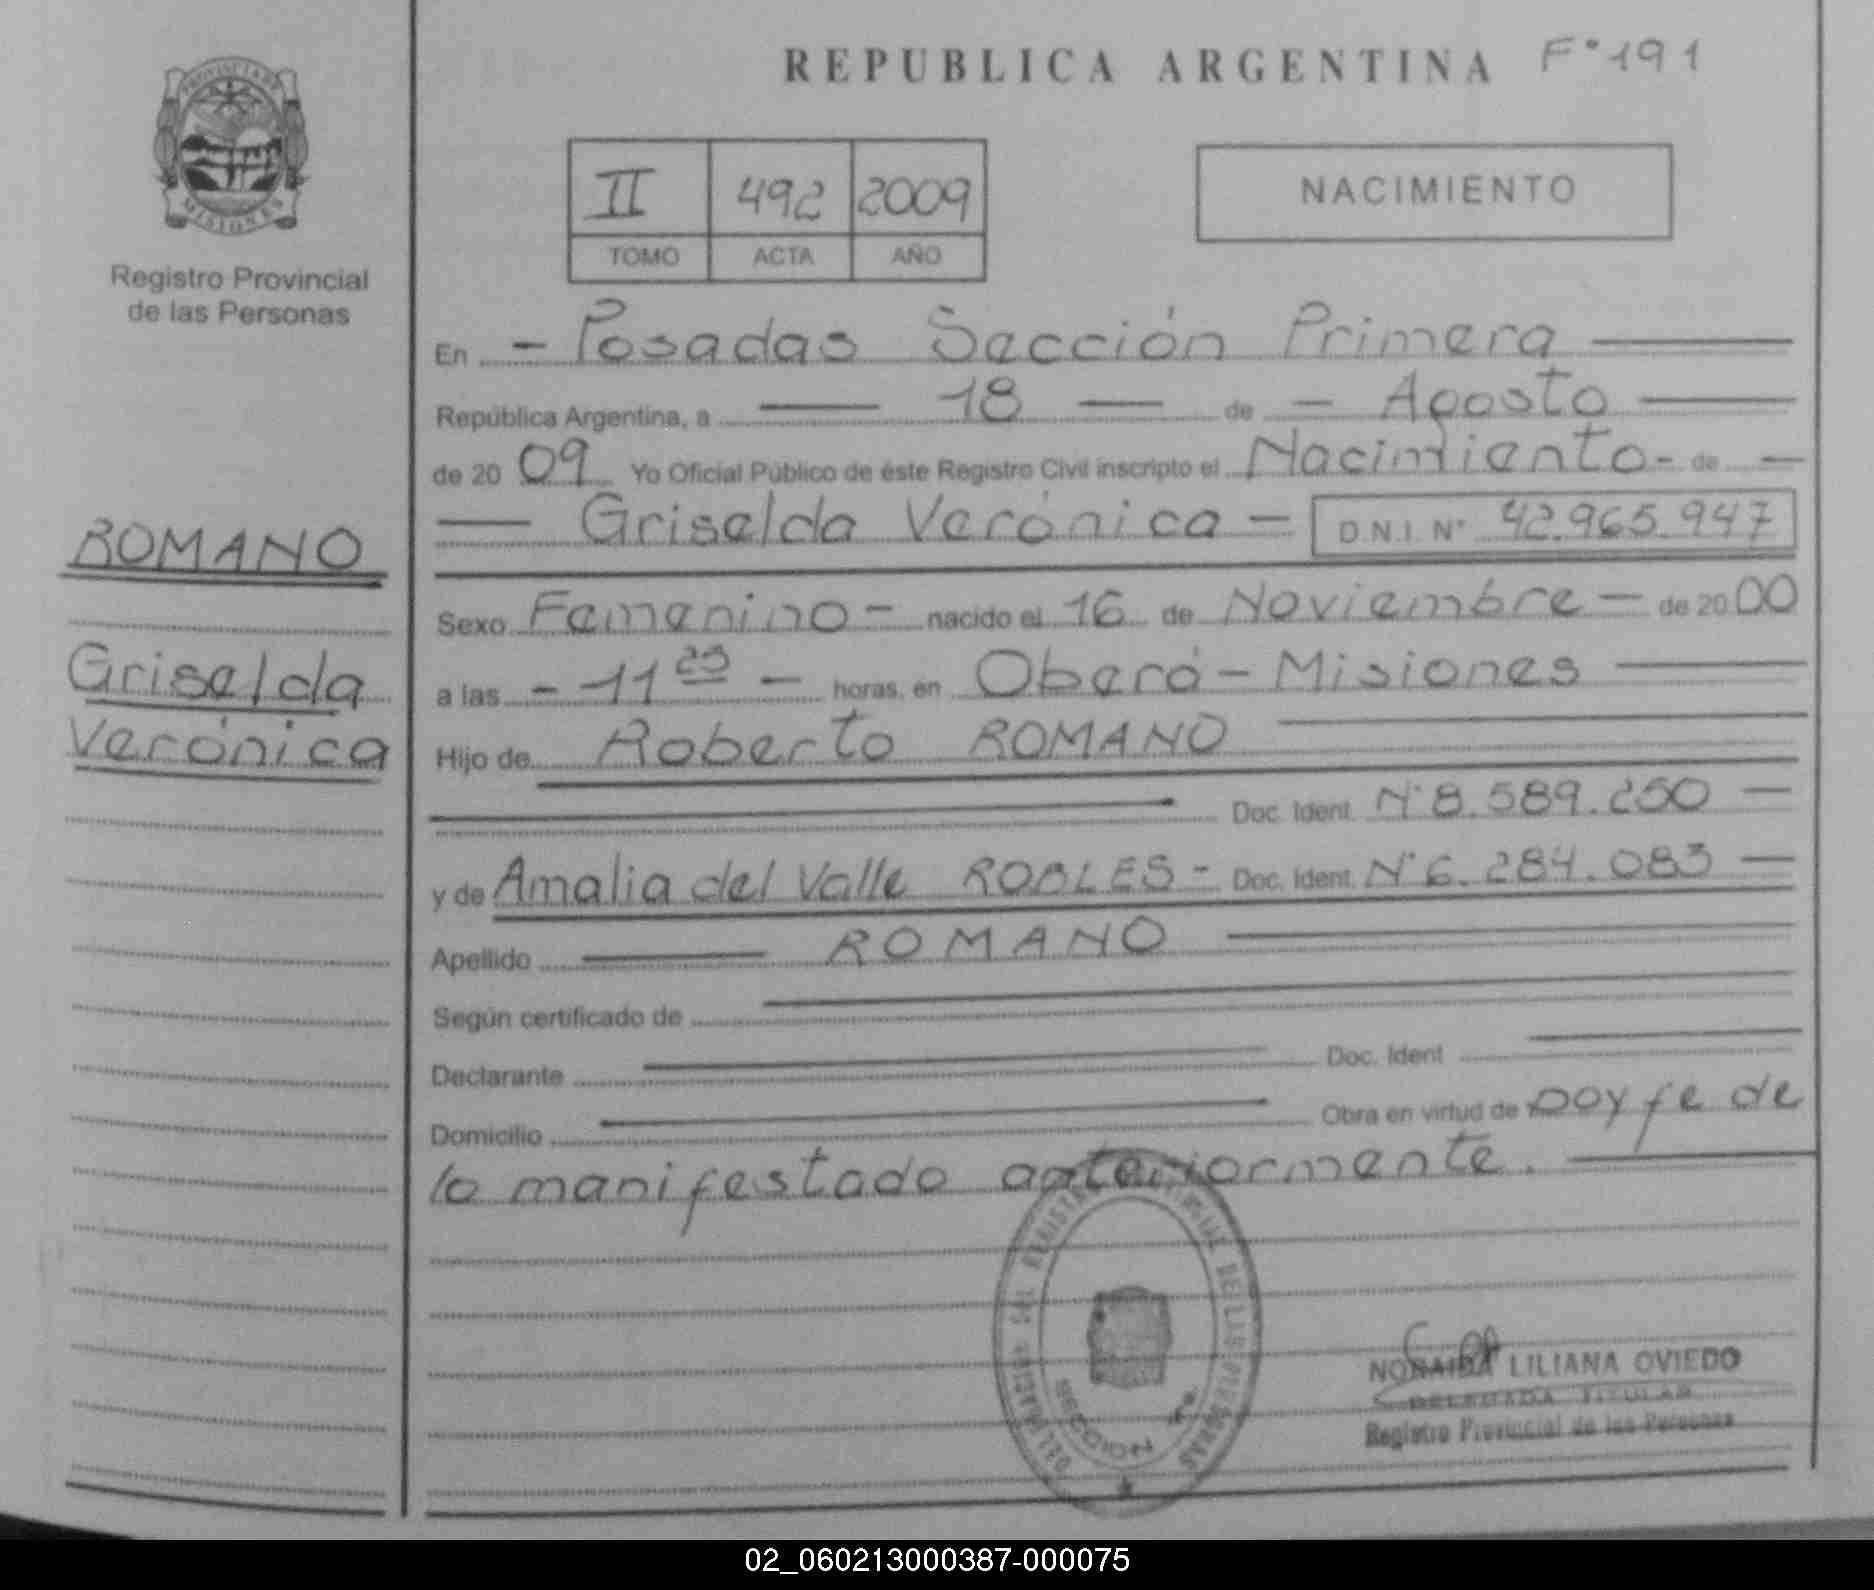 REPUBLICA ARGENTINA F° 191
PROVINCIA DE
MISIONES
Registro Provincial
de las Personas
II 492 2009
TOMO ACTA AÑO
NACIMIENTO
En - Posadas Sección Primera
República Argentina, a 18 de - Agosto
de 20 09 Yo Oficial Público de éste Registro Civil inscripto el Nacimiento - de
Griselda Verónica - D.N.I. N° 42.965.947
ROMANO
Griselda
Verónica
Sexo Femenino - nacido el 16 de Noviembre - de 20 00
a las - 11 25 - horas, en Oberá - Misiones
Hijo de Roberto ROMANO
Doc. Ident. N° 8.589.250
y de Amalia del Valle ROBLES - Doc. Ident. N° 6.284.083
Apellido ROMANO
Según certificado de
Declarante Doc. Ident
Domicilio Obra en virtud de Doy fe de
lo manifestado anteriormente.
REGISTRO PROVINCIAL DE LAS PERSONAS
NORAIDA LILIANA OVIEDO
DELEGADA TITULAR
Registro Provincial de las Personas
02_060213000387-000075